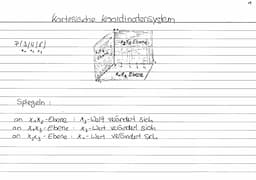 Kartesische Koordinatensystem
P(3/4/5)
x₁ x₂ x₃
x₂x₃ Ebene
x₁x₂ Ebene
Spiegeln:
an x₁x₂-Ebene: x₃-Wert verändert sich
an x₁x₃-Ebene: x₂-Wert verändert sich
an x₂x₃-Ebene: x₁-Wert verändert sich